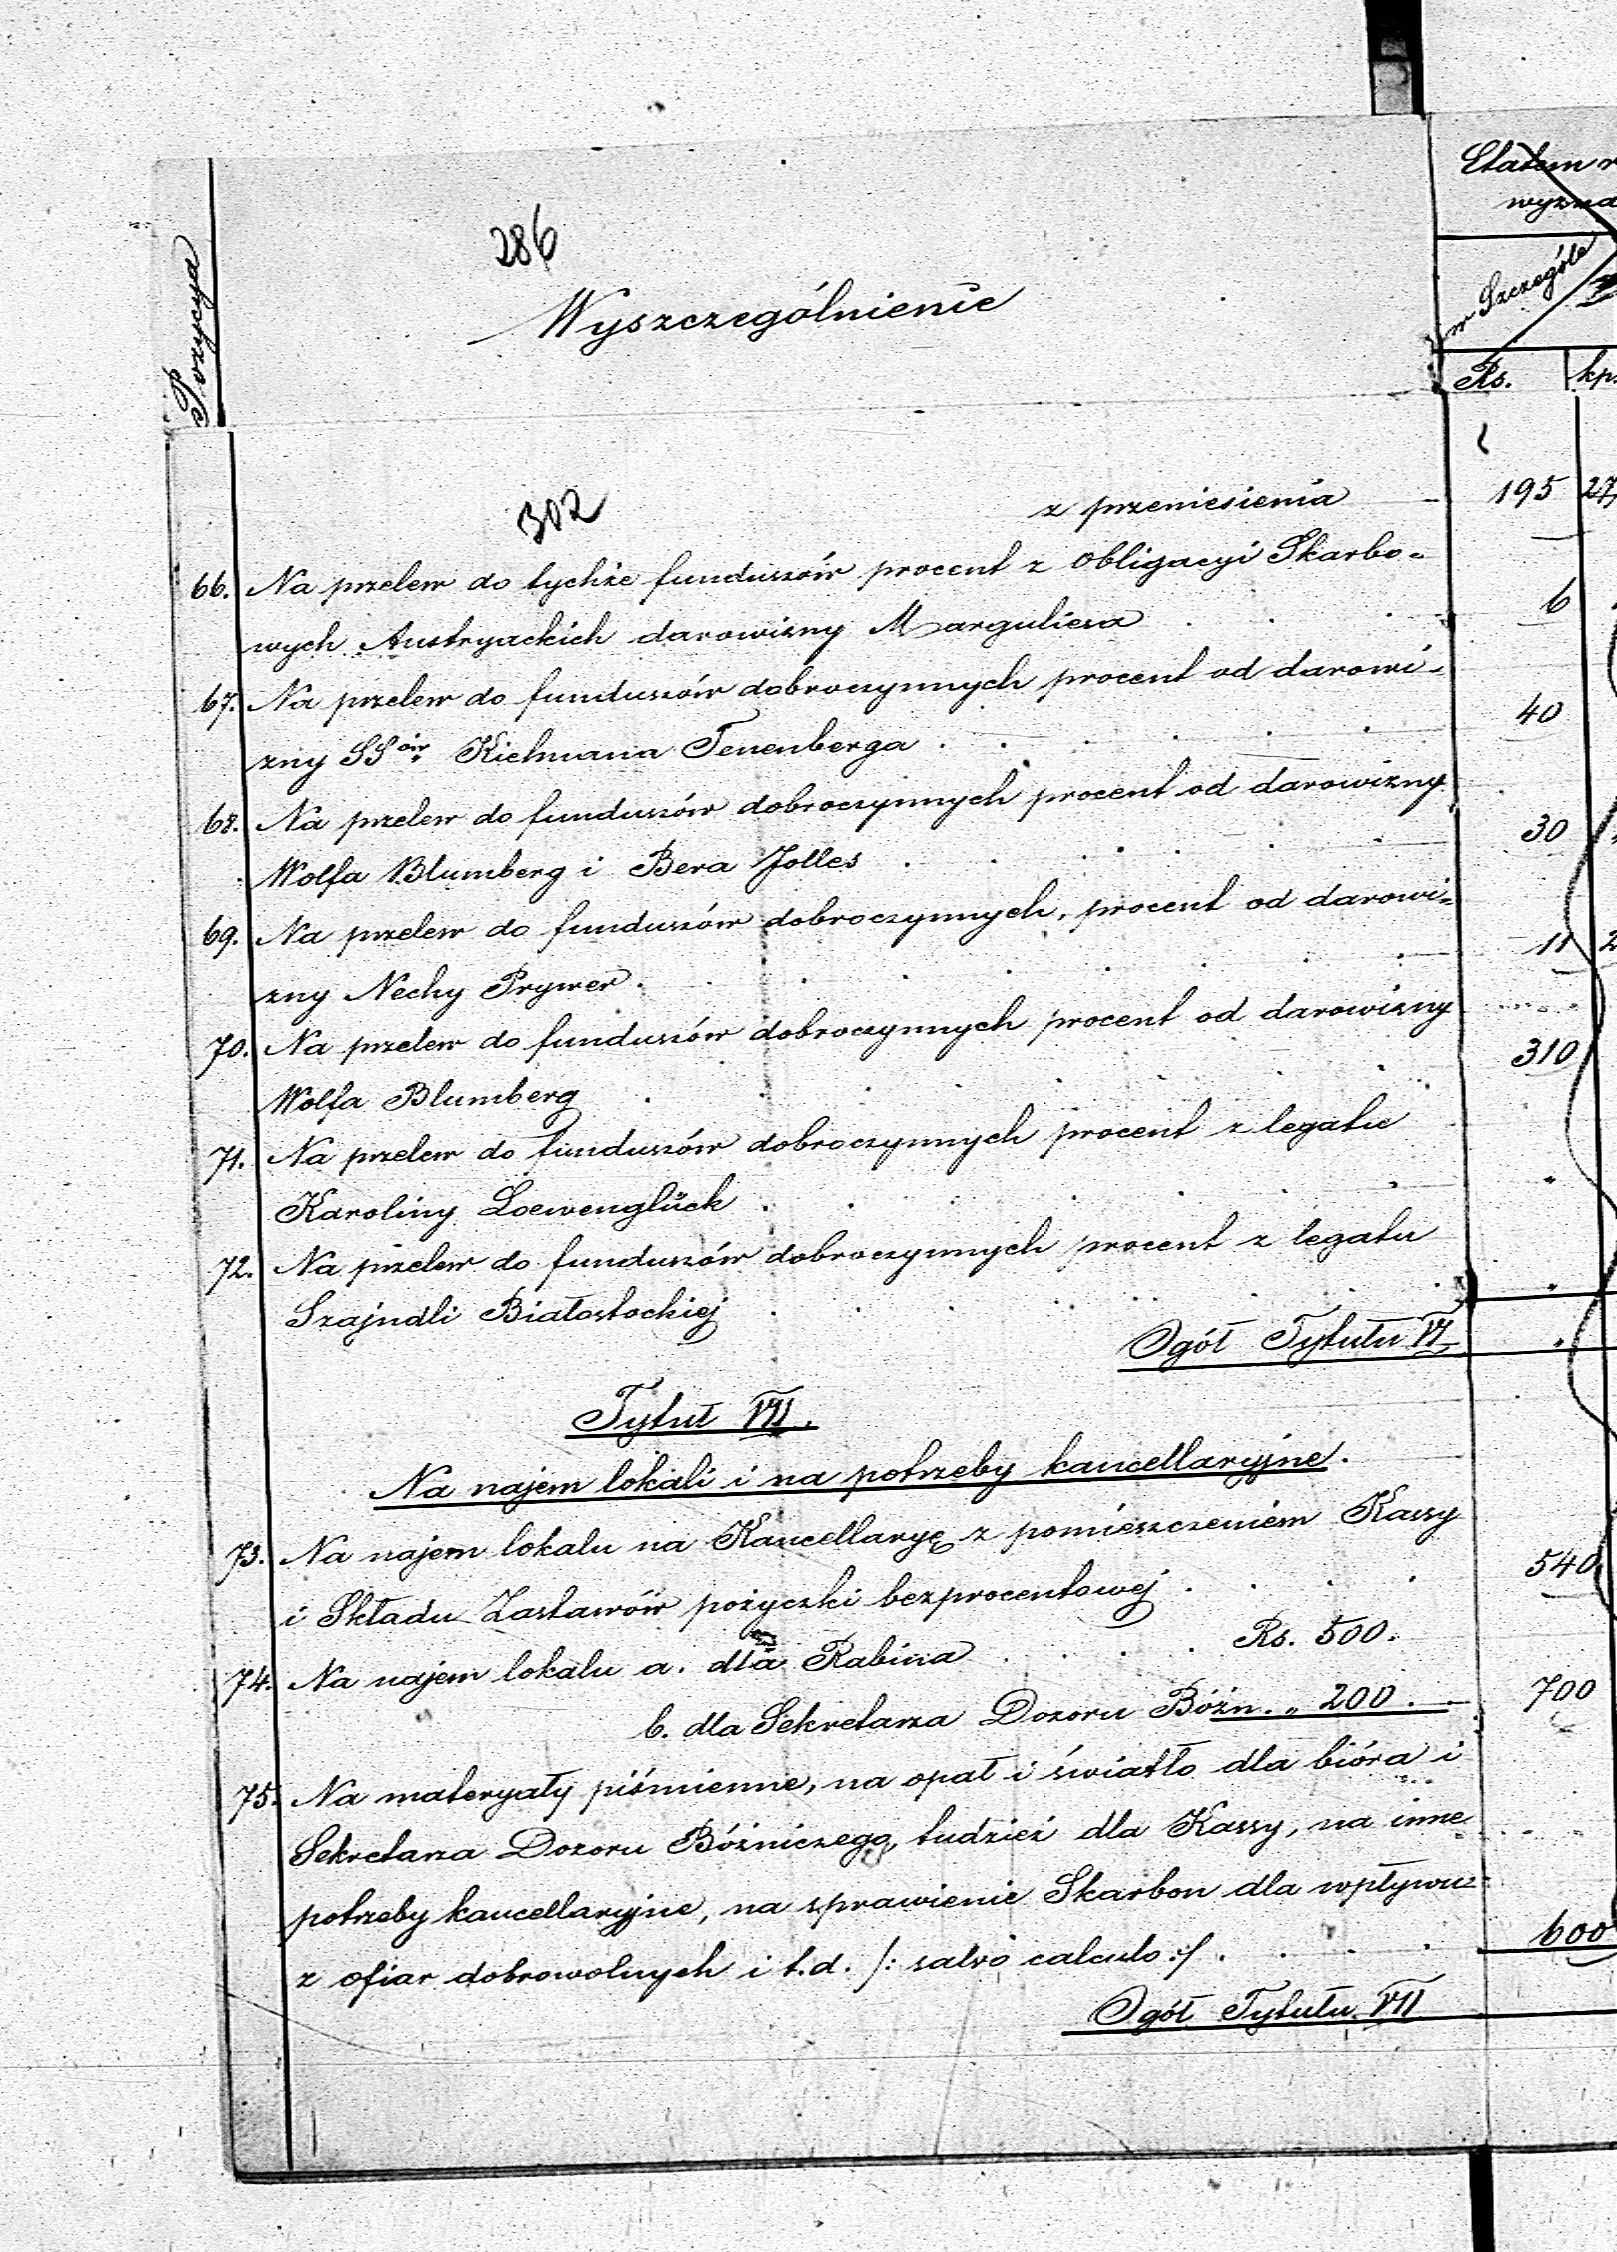 Pozycya
286
Wyszczególnienie
Etatem
w Szczególe
Rs. kp.
302
z przeniesienia 195 27
66. Na przelew do tychże funduszów procent z Obligacyi Skarbo-
wych Austryackich darowizny Marguliesa . . . 6
67. Na przelew do funduszów dobroczynnych procent od darowi-
zny SSów Kichmana Tenenberga . . . . . 40
68. Na przelew do funduszów dobroczynnych procent od darowizny
Wolfa Blumberg i Bera Jolles . . . . . . 30
69. Na przelew do funduszów dobroczynnych, procent od darowi-
zny Nechy Prywer . . . . . . 11 2
70. Na przelew do funduszów dobroczynnych procent od darowizny
Wolfa Blumberg . . . . . . 310
71. Na przelew do funduszów dobroczynnych procent z legatu
Karoliny Loewenglück . . . . . . "
72. Na przelew do funduszów dobroczynnych procent z legatu
Szajndli Białostockiej . . . . . . "
Ogół Tytułu VI "
Tytuł VII.
Na najem lokali i na potrzeby kancellaryjne.
73. Na najem lokalu na Kancellaryę z pomieszczeniem Kassy
i Składu Zastawów pożyczki bezprocentowej . . . 540
74. Na najem lokalu a. dla Rabina . . . . Rs. 500.
b. dla Sekretarza Dozoru Bóżn. " 200. 700
75. Na materyały piśmienne, na opał i światło dla bióra i
Sekretarza Dozoru Bóżniczego, tudzież dla Kassy, na inne
potrzeby kancellaryjne, na sprawienie Skarbon dla wpływu
z ofiar dobrowolnych i t.d. /: salvo calculo :/ . . . 600
Ogół Tytułu VII